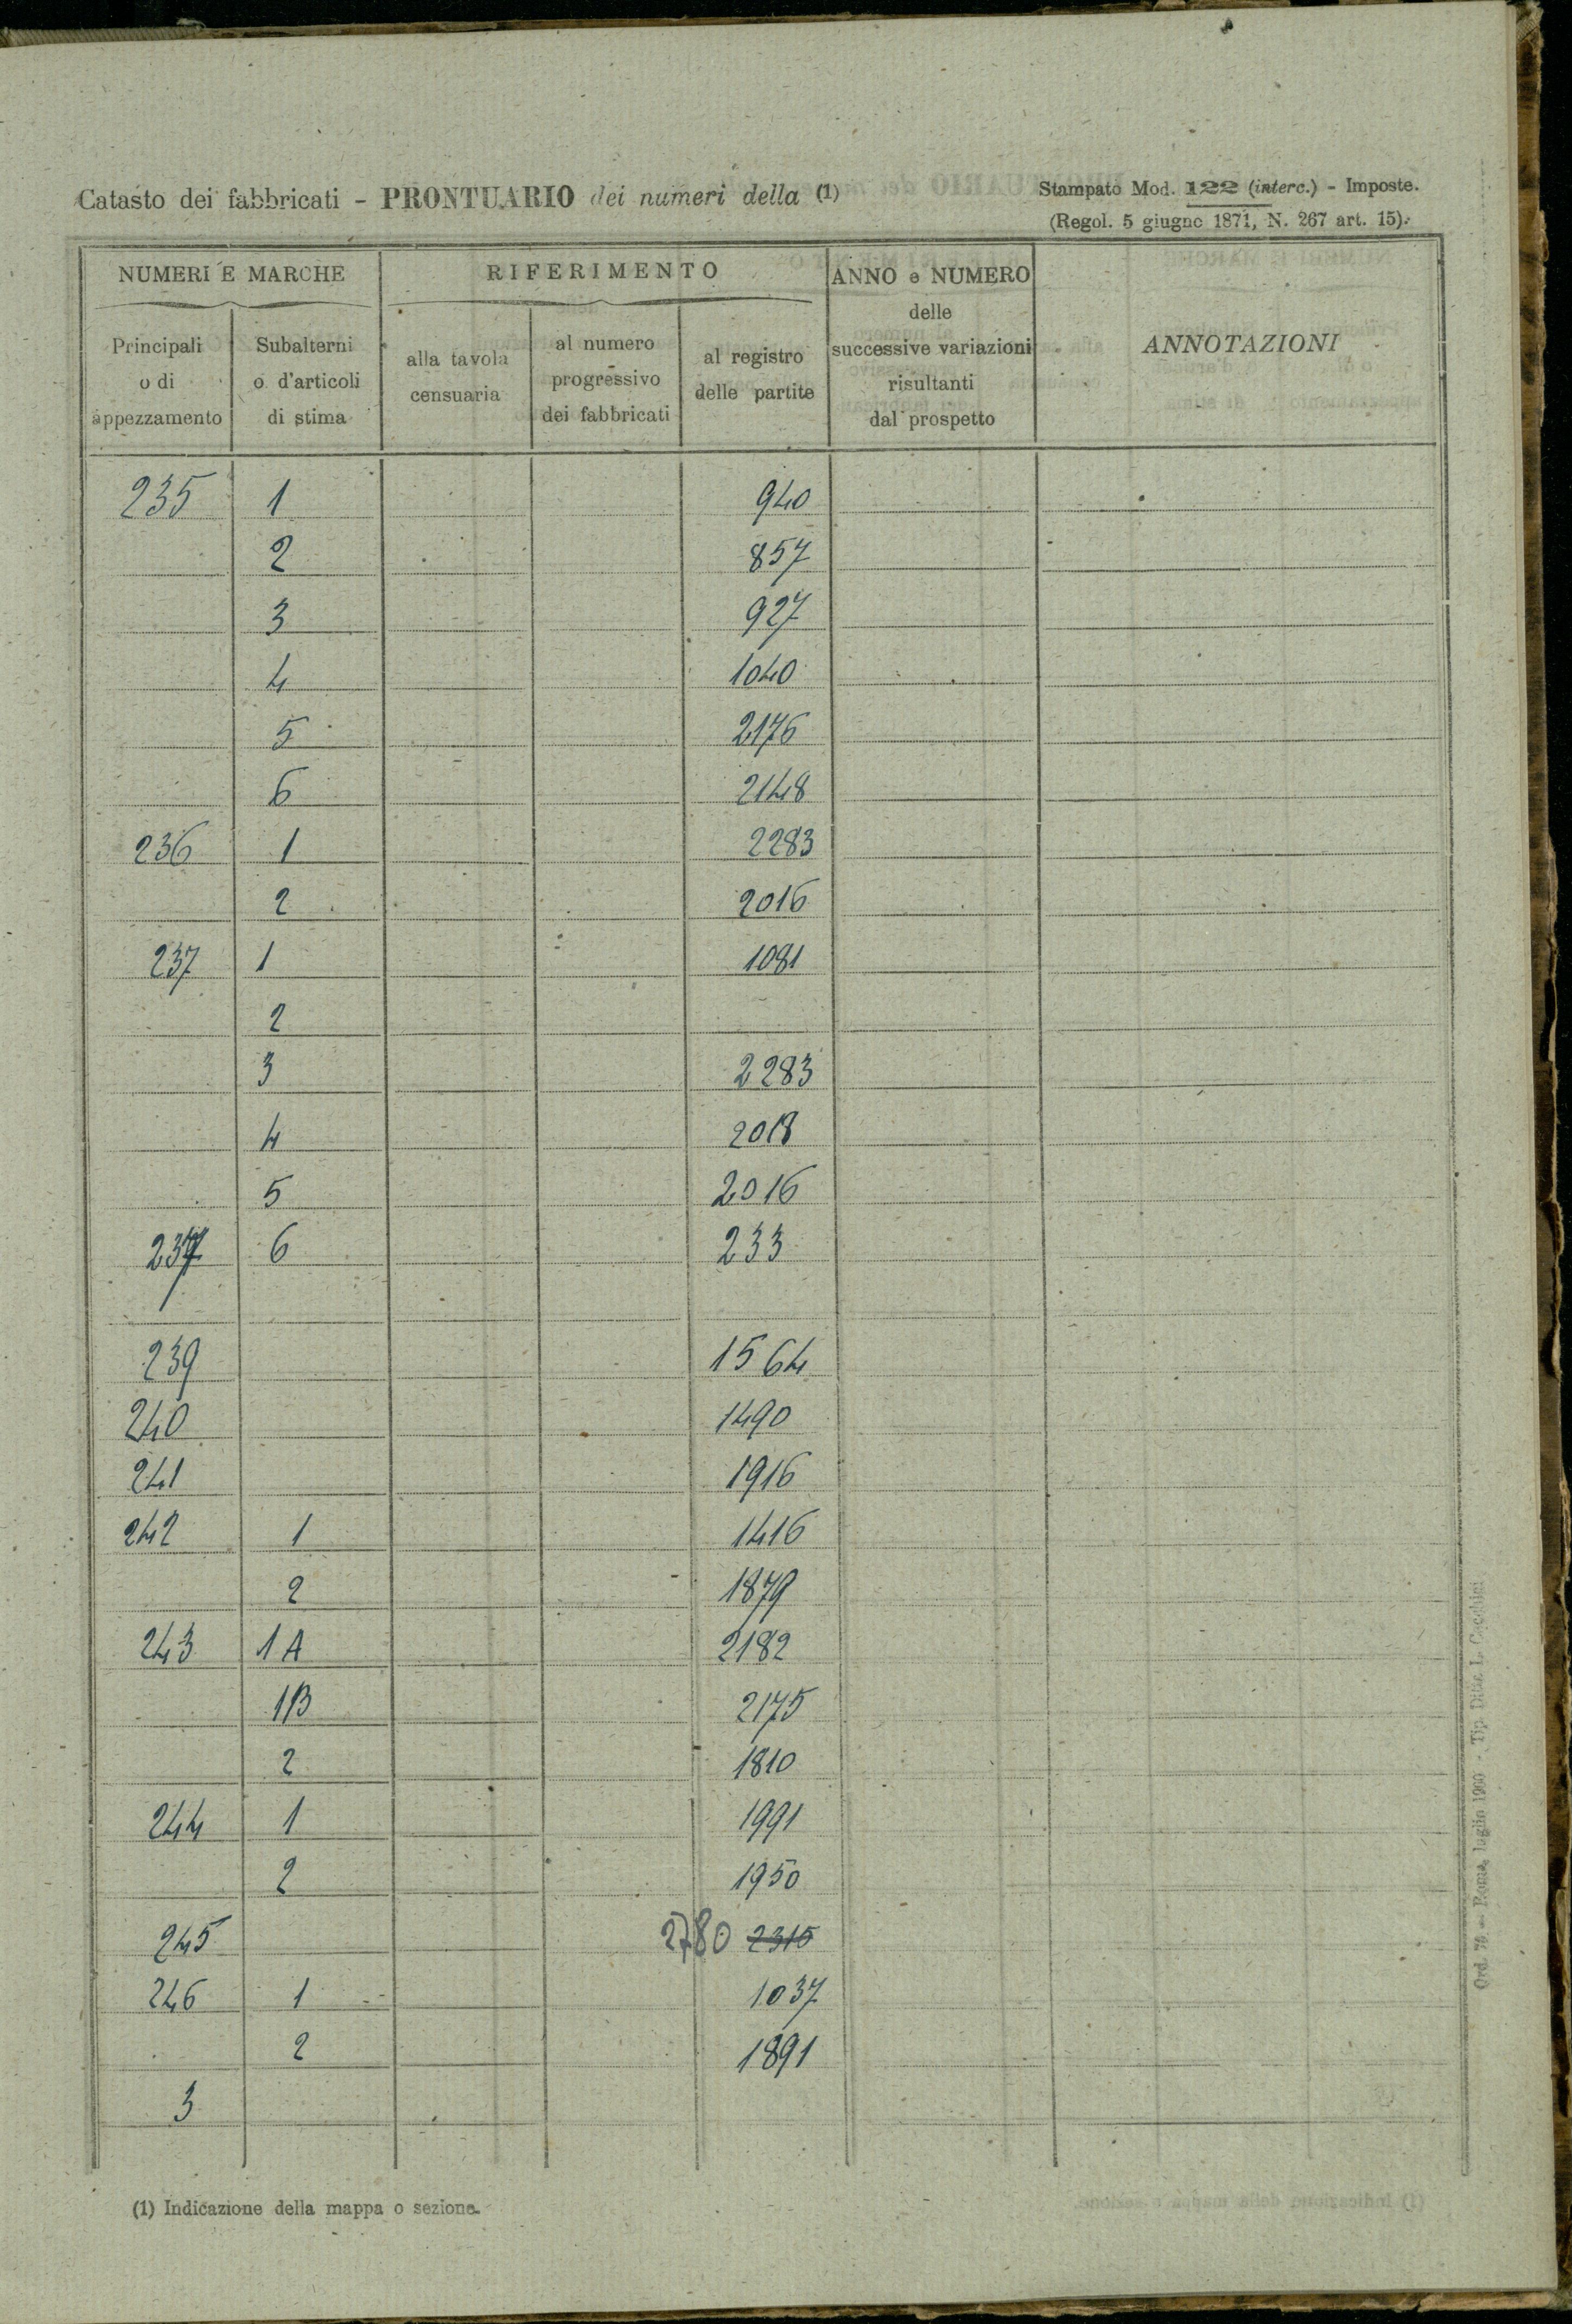 Catasto dei fabbricati - PRONTUARIO dei numeri della (1)
Stampato Mod. 122 (interc.) - Imposte.
(Regol. 5 giugno 1871, N. 267 art. 15).
NUMERI E MARCHE
RIFERIMENTO
ANNO e NUMERO
delle
successive variazioni
risultanti
dal prospetto
ANNOTAZIONI
Principali
o di
appezzamento
Subalterni
o d'articoli
di stima
alla tavola
censuaria
al numero
progressivo
dei fabbricati
al registro
delle partite
235 1 940
2 857
3 927
4 1040
5 2176
6 2148
236 1 2283
2 2016
237 1 1081
2
3 2283
4 2018
5 2016
237 6 233
239 1564
240 1490
241 1916
242 1 1416
2 1879
243 1A 2182
1B 2175
2 1810
244 1 1991
2 1950
245 2780 2315
246 1 1037
2 1891
3
(1) Indicazione della mappa o sezione.
Ord. 79 - Roma, luglio 1900 - Tip. Ditta L. Cecchini